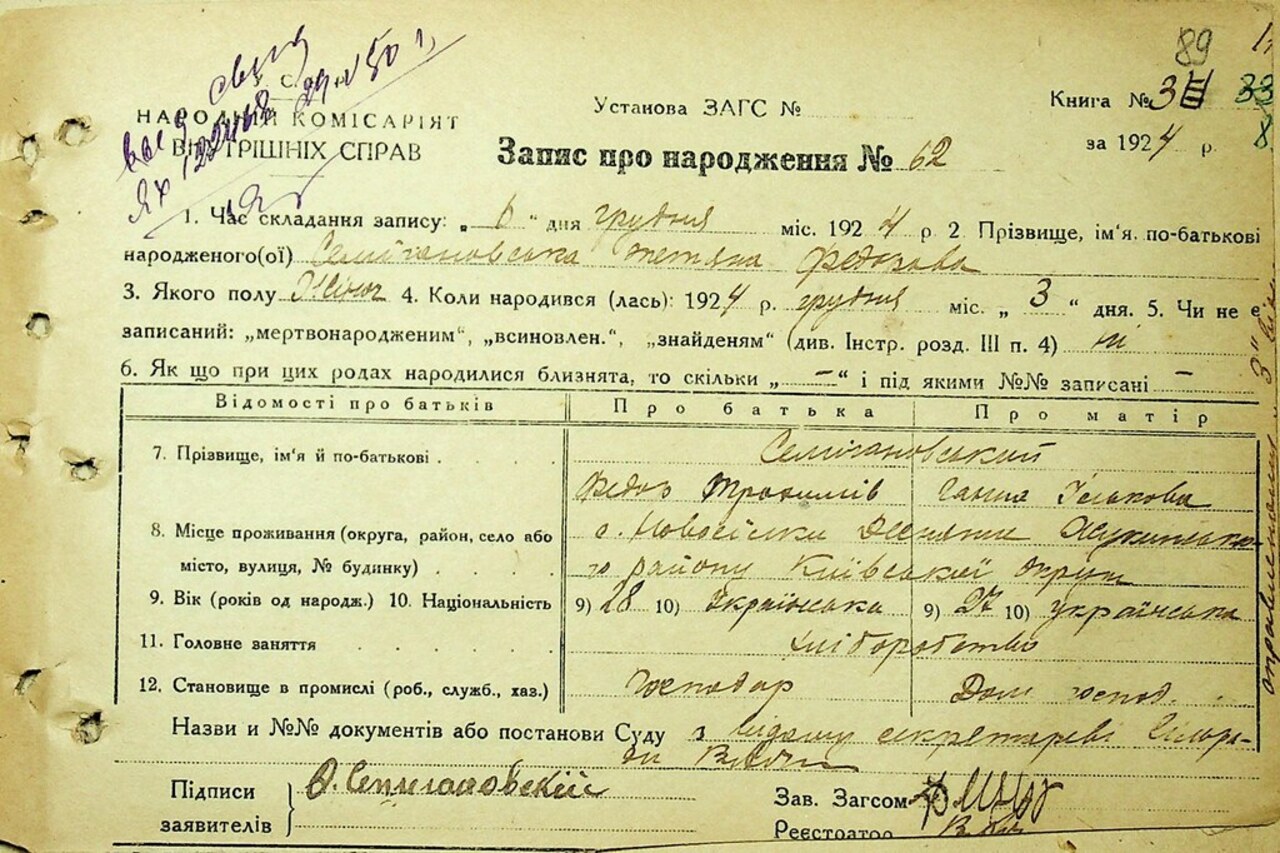 89
свід
29 V 50 г.
У. С. Р. Р.
НАРОДНІЙ КОМІСАРІЯТ
ВНУТРІШНІХ СПРАВ
ЯХ 122468
Установа ЗАГС №
Книга № 3 33
за 1924 р. 8
Запис про народження № 62
1. Час складання запису: „ 6 “ дня грудня міс. 1924 р 2. Прізвище, ім'я. по-батькові
народженого(ої) Семігановська Тетяна Федорова
3. Якого полу Жіноч 4. Коли народився (лась): 1924 р. грудня міс. „ 3 “ дня. 5. Чи не є
записаний: „мертвонародженим“, „всиновлен.“, „знайденям“ (див. Інстр. розд. III п. 4) ні
6. Як що при цих родах народилися близнята, то скільки „ — “ і під якими №№ записані —
Відомості про батьків Про батька Про матір
7. Прізвище, ім'я й по-батькові . . . . Семігановський
Федор Трохимів Ганна Ількова
8. Місце проживання (округа, район, село або с. Новосілки Жукинсько-
місто, вулиця, № будинку) . . . . го району Київської округи
9. Вік (років од народж.) 10. Національність 9) 28 10) Українська 9) 27 10) українська
11. Головне заняття . . . . . хліборобство
12. Становище в промислі (роб., служб., хаз.) Господар Дом. господ.
Назви и №№ документів або постанови Суду з відому секретареві Сільра-
ди
Підписи
заявителів
Ф. Семигановский
Зав. Загсом
Реєстратор